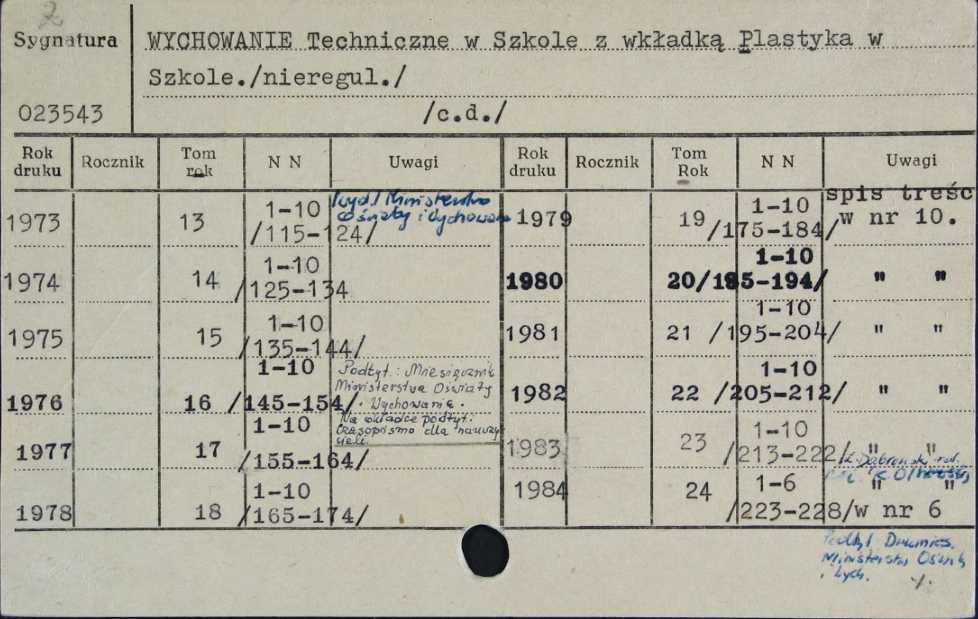 2
Sygnatura
023543
WYCHOWANIE Techniczne w Szkole z wkładką Plastyka w
Szkole./nieregul./
/c.d./
Rok druku Rocznik Tom rok N N Uwagi
1973 13 1-10 /115-124/ Ministerstwo Oświaty i Wychowania
1974 14 1-10 /125-134
1975 15 1-10 /135-144/
1976 16 1-10 /145-154/ Podtyt.: Miesięcznik
Ministerstwa Oświaty
i Wychowania.
Na wkładce podtyt.:
Czasopismo dla nauczy-
cieli.
1977 17 1-10 /155-164/
1978 18 1-10 /165-174/
Rok druku Rocznik Tom Rok N N Uwagi
1979 19 1-10 /175-184/ spis treśc
w nr 10.
1980 20 1-10 /185-194/ " "
1981 21 1-10 /195-204/ " "
1982 22 1-10 /205-212/ " "
1983 23 1-10 /213-222/ " "
1984 24 1-6 /223-228/ " "
w nr 6
Ministerstwa Oświaty
i Wych.